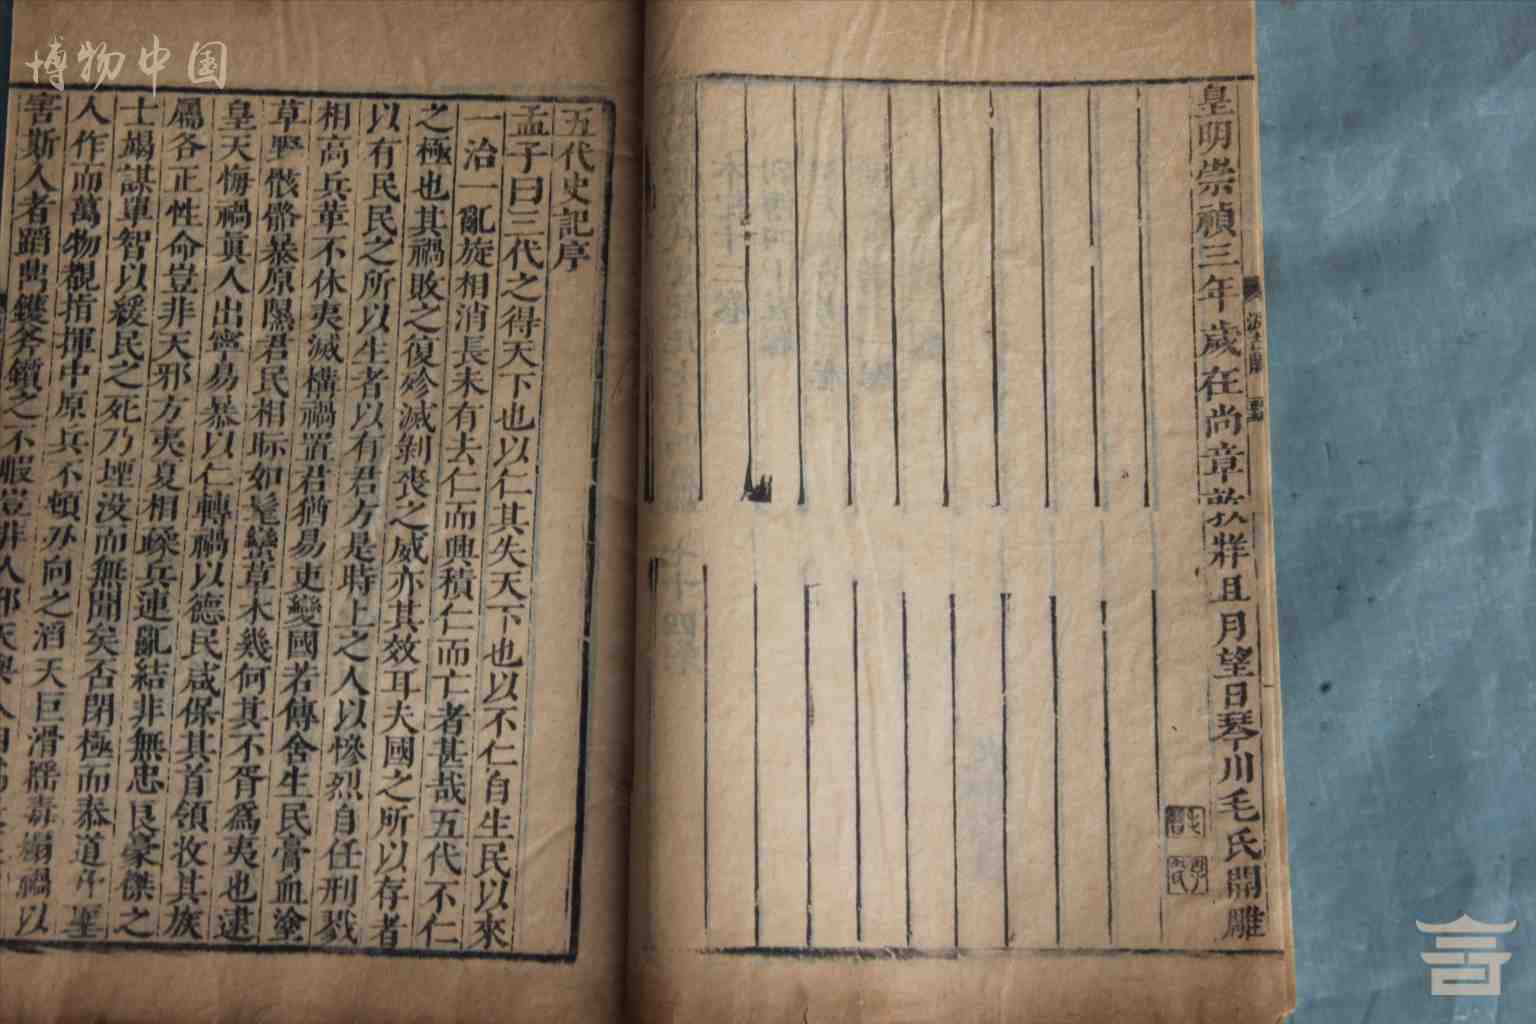 博物中国
皇明崇禎三年歲在尚章敦牂且月望日琴川毛氏開雕
五代史記序
孟子曰三代之得天下也以仁其失天下也以不仁自生民以來
一治一亂旋相消長未有去仁而興積仁而亡者甚哉五代不仁
之極也其禍敗之復殄滅剝喪之威亦其效耳夫國之所以存者
以有民民之所以生者以有君方是時上之人以慘烈自任刑戮
相高兵革不休夷滅構禍置君猶易吏變國若傳舍生民膏血塗
草野骸骼暴原隰君民相眎如髦蠻草木幾何其不胥爲夷也逮
皇天悔禍真人出寧易暴以仁轉禍以德民咸保其首領收其族
屬各正性命豈非天邪方夷夏相蹂兵連亂結非無忠良豪傑之
士竭謀單智以緩民之死乃堙没而無聞矣否閉極而泰道升聖
人作而萬物覩指揮中原兵不頓刃向之滔天巨滑搖毒煽禍以
害斯人者蹈鼎鑊斧鑕之不暇豈非人邪天與人相爲